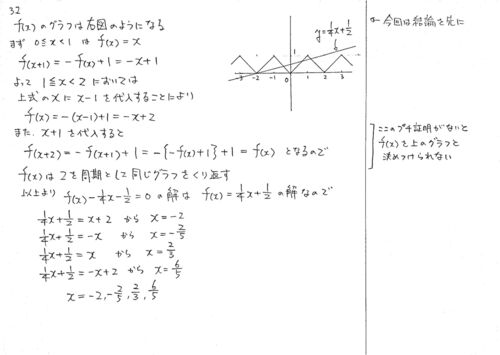 32
f(x)のグラフは右図のようになる
まず 0≦x<1 は f(x)=x
f(x+1)=-f(x)+1=-x+1
よって 1≦x<2 においては
上式の x に x-1 を代入することにより
f(x)=-(x-1)+1=-x+2
また x+1 を代入すると
f(x+2)=-f(x+1)+1=-{-f(x)+1}+1=f(x) となるので
f(x)は2を周期として同じグラフをくり返す
以上より f(x)-1/4x-1/2=0 の解は f(x)=1/4x+1/2 の解なので
1/4x+1/2=x+2 から x=-2
1/4x+1/2=-x から x=-2/5
1/4x+1/2=x から x=2/3
1/4x+1/2=-x+2 から x=6/5
x=-2,-2/5,2/3,6/5
y=1/4x+1/2
1
-3 -2 -1 0 1 2 3
今回は結論を先に
ここのプチ証明がないと
f(x)を上のグラフと
決めつけられない